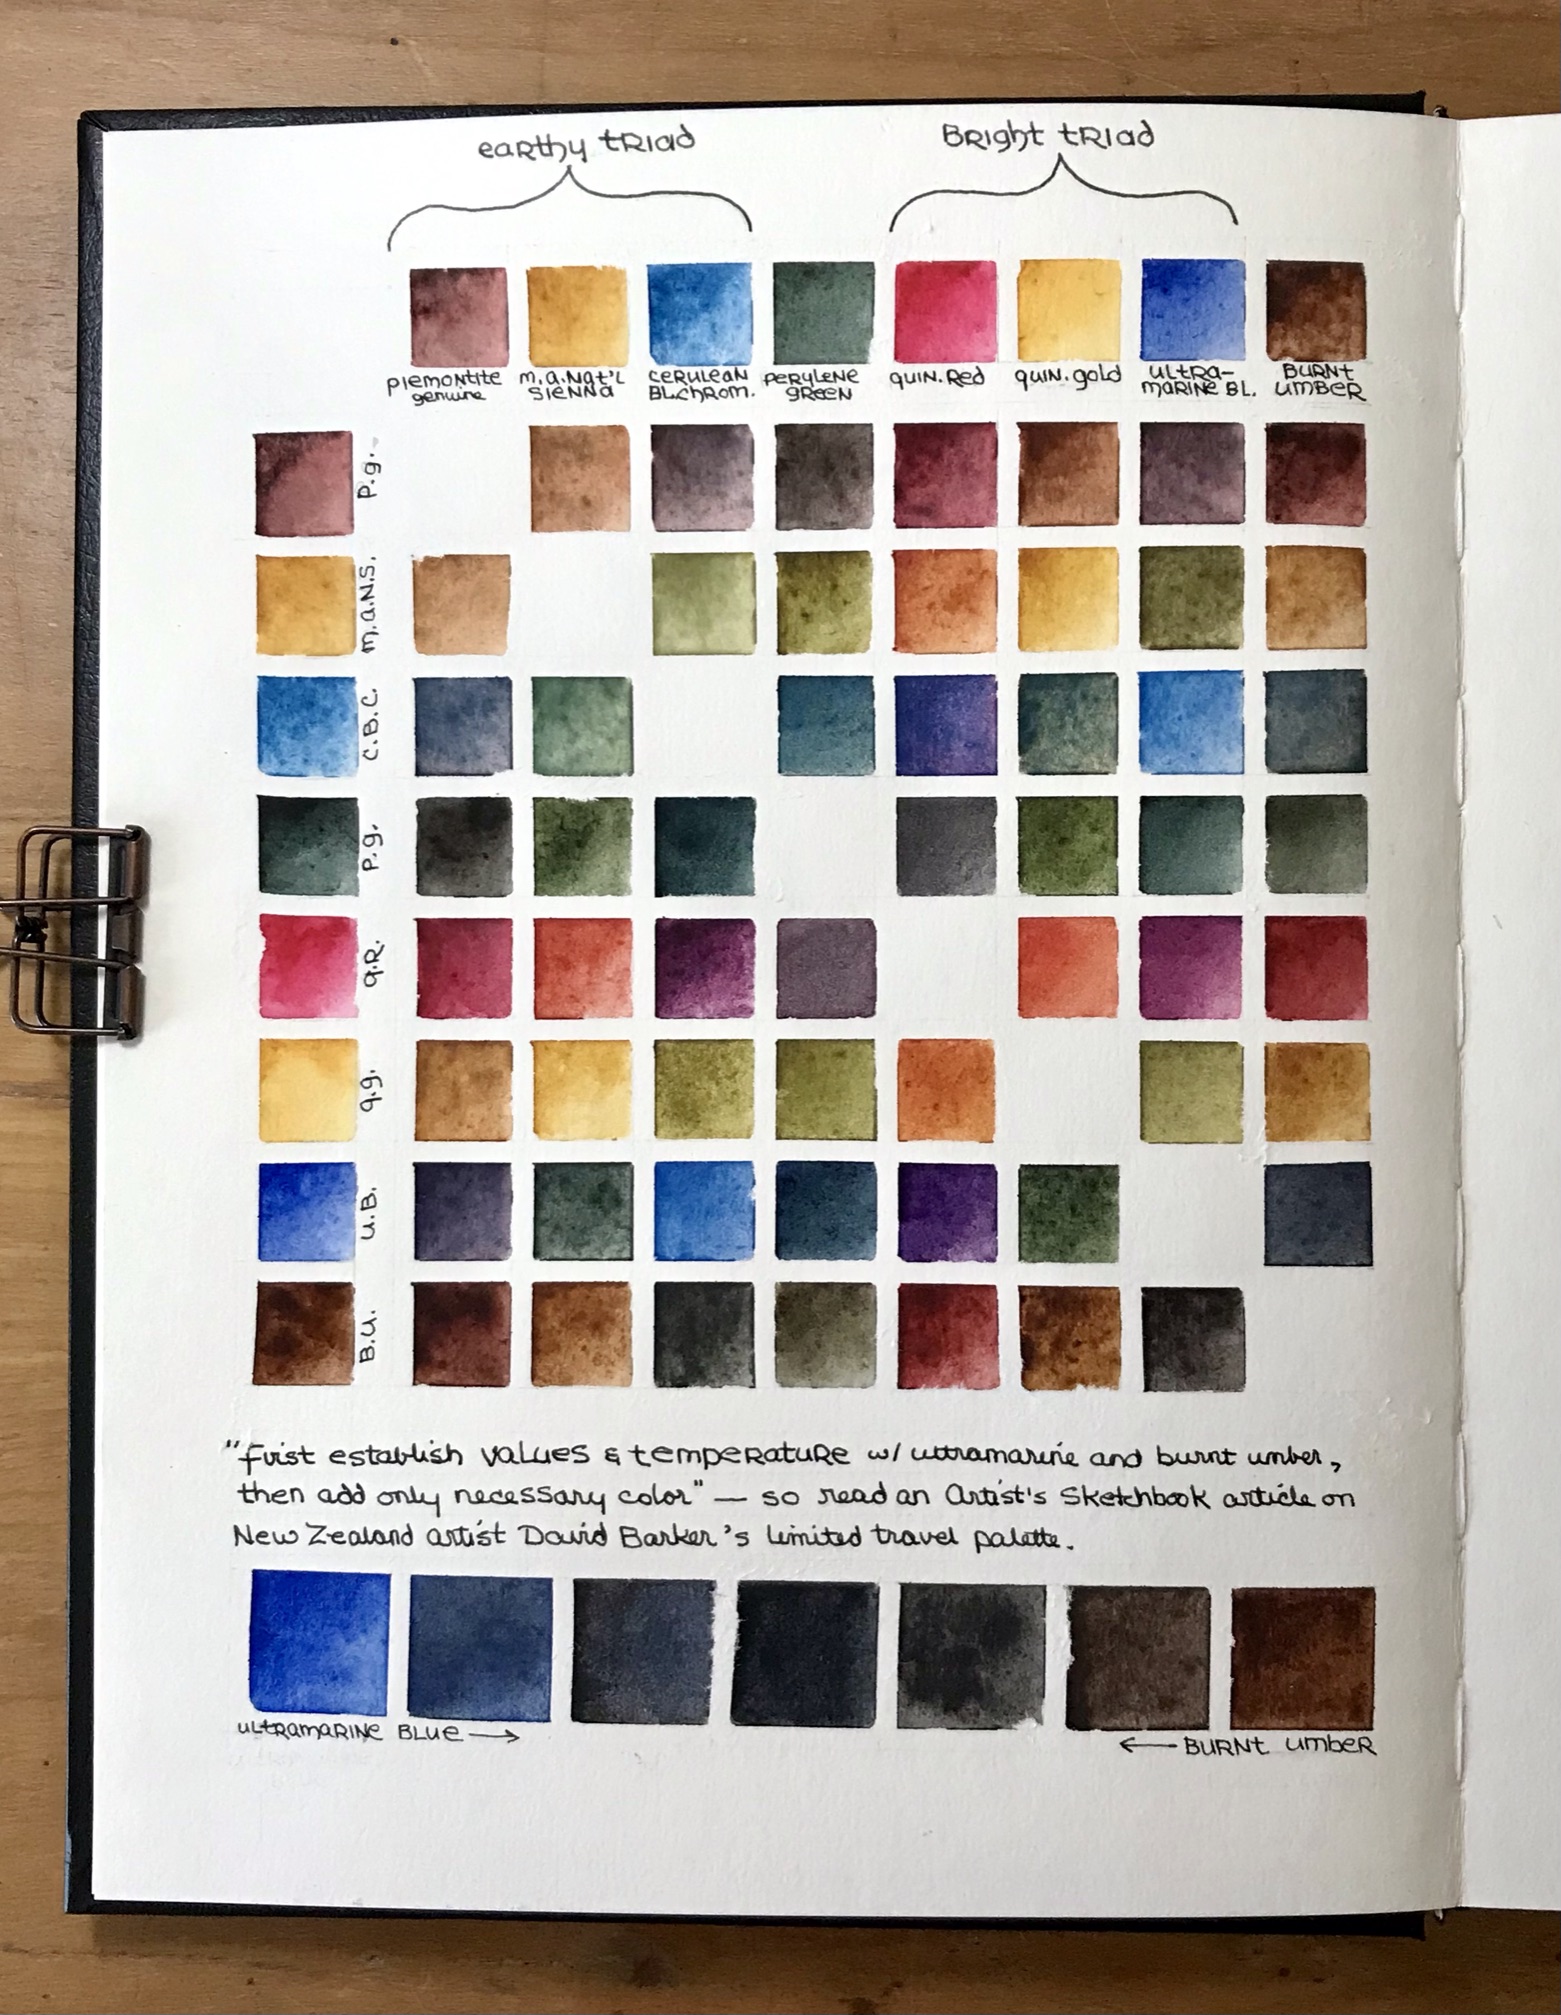 earthy triad
Bright triad
piemontite
genuine
m.a.Nat'l
sienna
cerulean
Bl.chrom.
perylene
green
quin. Red
quin. gold
ultra-
marine Bl.
Burnt
umber
P.g.
m.a.N.S.
C.B.C.
P.g.
q.R.
q.g.
U.B.
B.U.
"First establish values & temperature w/ ultramarine and burnt umber,
then add only necessary color" — so read an Artist's Sketchbook article on
New Zealand artist David Barker's limited travel palette.
ultramarine Blue →
← Burnt umber